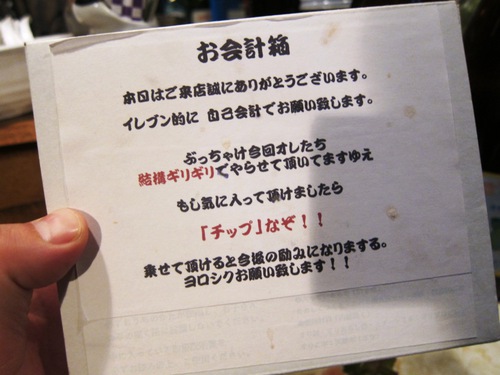 お会計箱
本日はご来店誠にありがとうございます。
イレブン的に 自己会計でお願い致します。
ぶっちゃけ今回オレたち
結構ギリギリでやらせて頂いてますゆえ
もし気に入って頂けましたら
「チップ」なぞ！！
乗せて頂けると今後の励みになりまする。
ヨロシクお願い致します！！